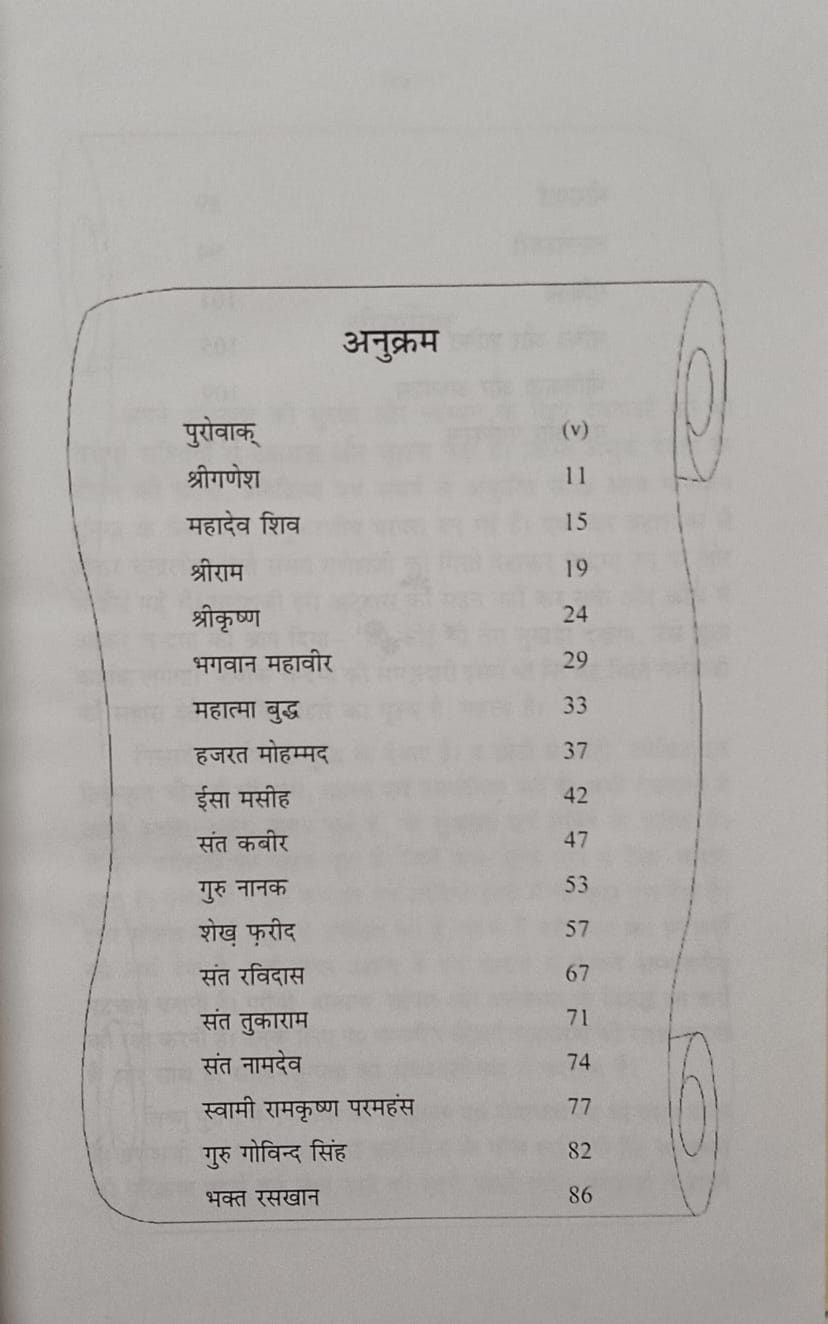 अनुक्रम
पुरोवाक् (v)
श्रीगणेश 11
महादेव शिव 15
श्रीराम 19
श्रीकृष्ण 24
भगवान महावीर 29
महात्मा बुद्ध 33
हजरत मोहम्मद 37
ईसा मसीह 42
संत कबीर 47
गुरु नानक 53
शेख़ फ़रीद 57
संत रविदास 67
संत तुकाराम 71
संत नामदेव 74
स्वामी रामकृष्ण परमहंस 77
गुरु गोविन्द सिंह 82
भक्त रसखान 86